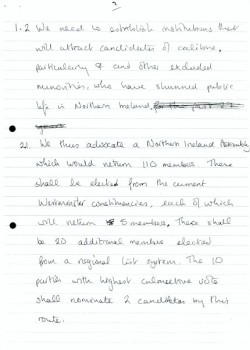 2
1.2 We need to establish institutions that
will attract candidates of calibre,
particularly & and other excluded
minorities, who have shunned public
life in Northern Ireland.
2. We thus advocate a Northern Ireland Assembly
which would return 110 members. These
shall be elected from the current
Westminster constituencies, each of which
will return 5 members. There shall
be 20 additional members elected
from a regional list system. The 10
parties with highest cumulative vote
shall nominate 2 candidates by this
route.